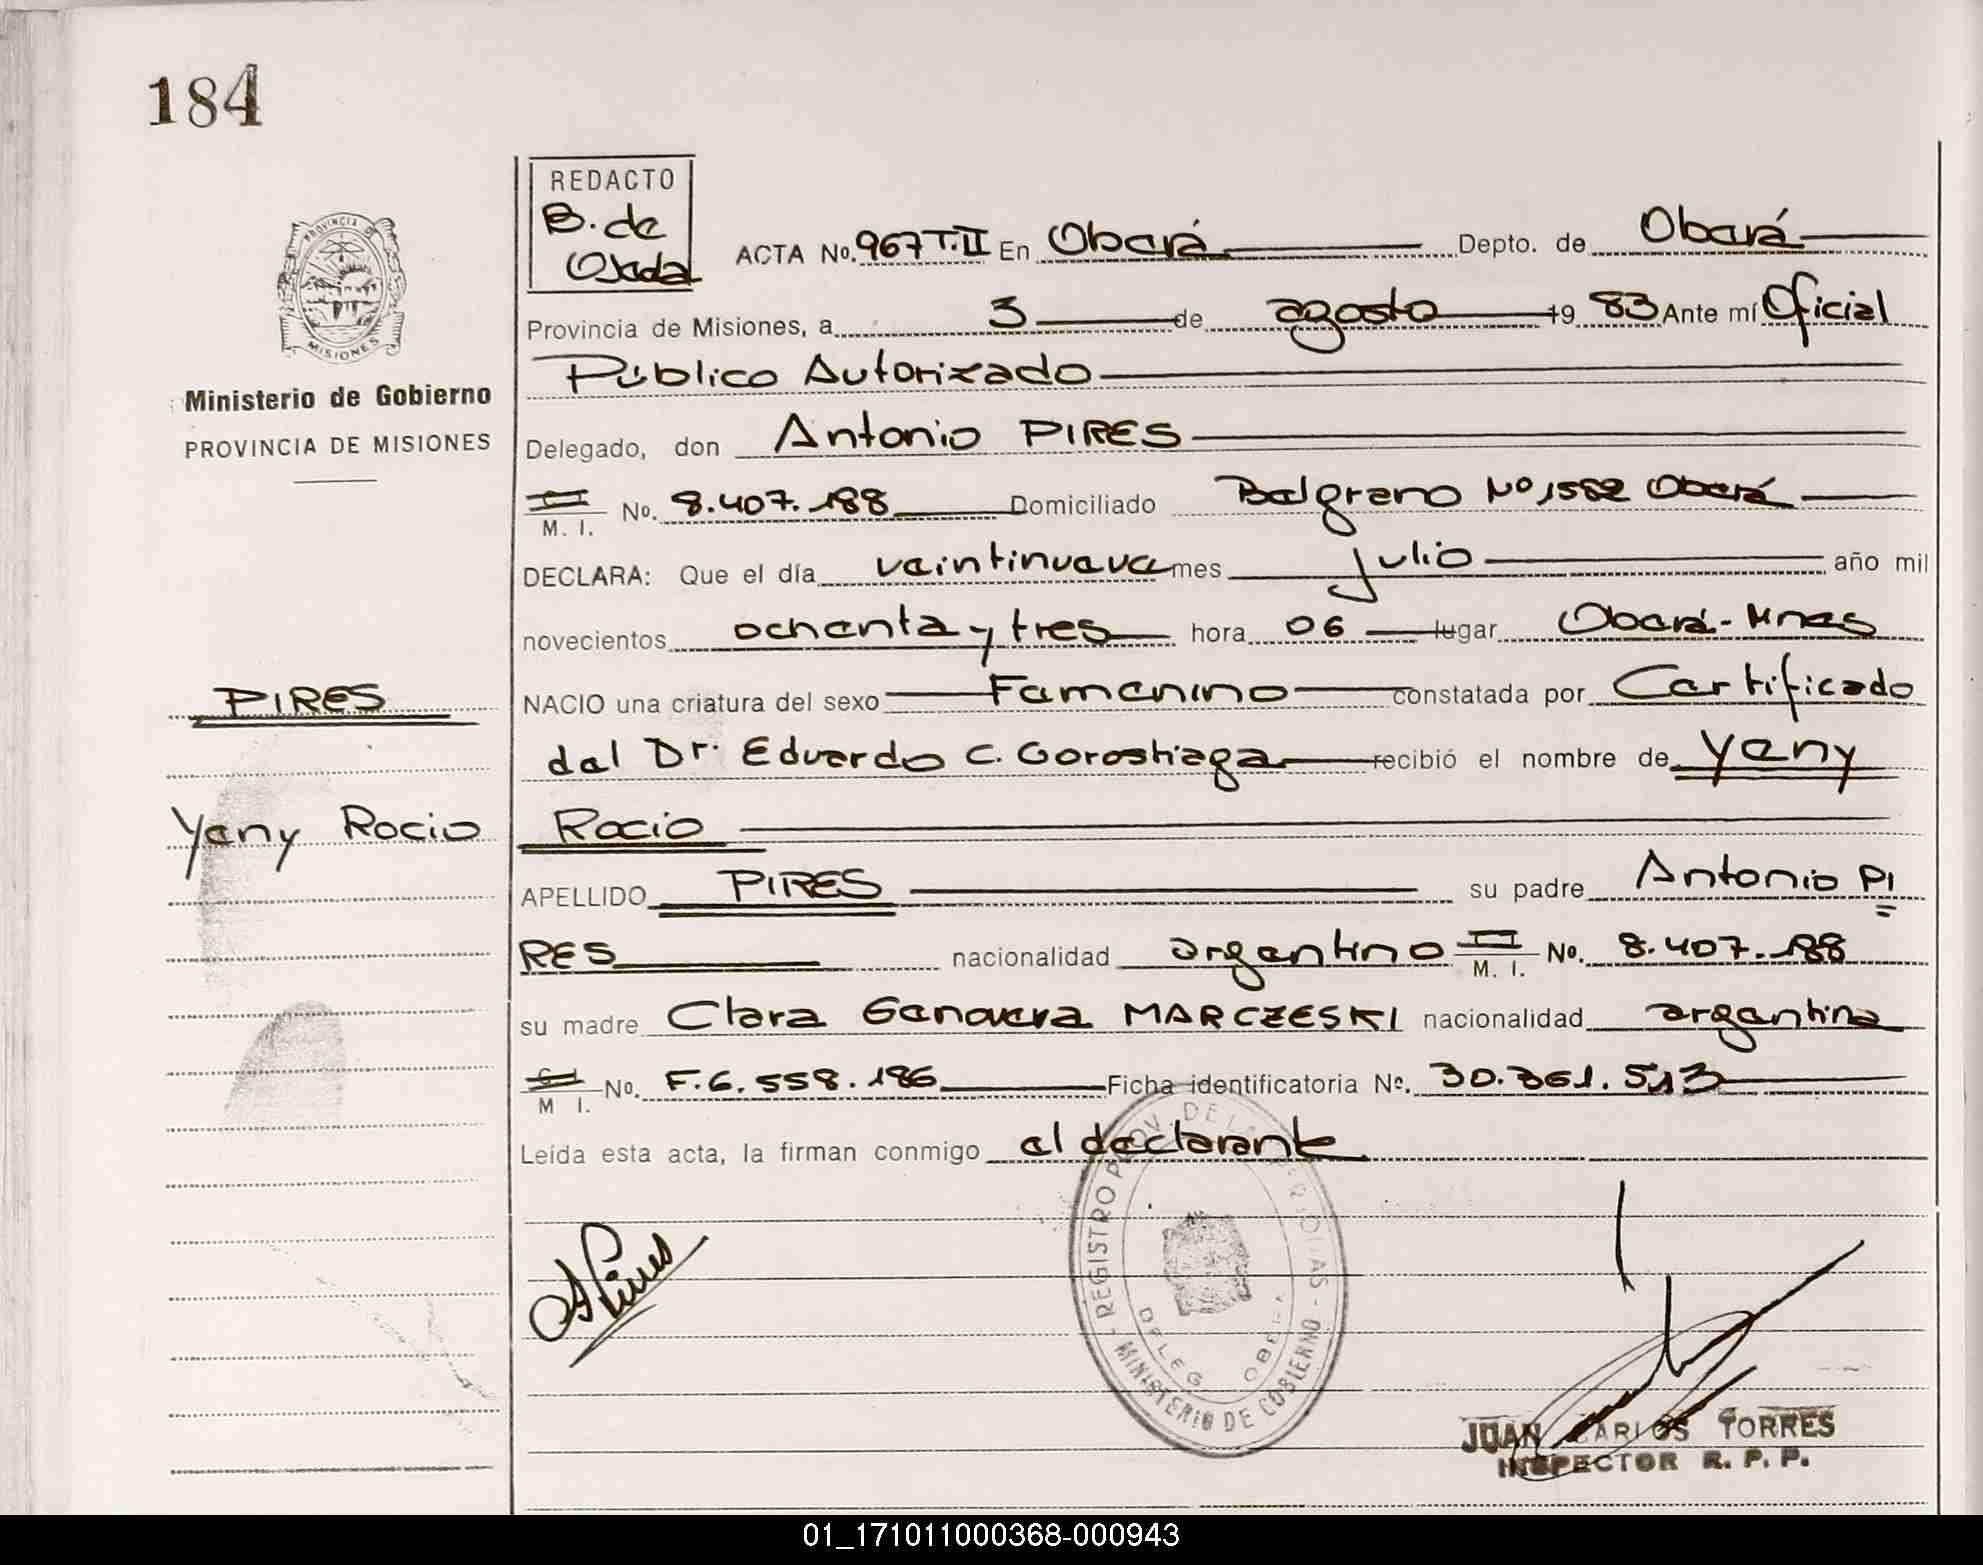 184
REDACTO
B. de
Ojeda
PROVINCIA DE
MISIONES
Ministerio de Gobierno
PROVINCIA DE MISIONES
ACTA No. 967 T.II En Oberá Depto. de Oberá
Provincia de Misiones, a 3 de agosto 19 83 Ante mí Oficial
Público Autorizado
Delegado, don Antonio PIRES
M. I. No. 8.407.188 Domiciliado Belgrano Nº 1582 Oberá
DECLARA: Que el día veintinueve mes julio año mil
novecientos ochenta y tres hora 06 lugar Oberá-Mnes
NACIO una criatura del sexo Femenino constatada por Certificado
del Dr. Eduardo C. Gorostiaga recibió el nombre de Yeny
Rocio
APELLIDO PIRES su padre Antonio PI
RES nacionalidad argentino M. I. No. 8.407.188
su madre Clara Genoveva MARCZESKI nacionalidad argentina
M I. No. F.6.558.186 Ficha identificatoria Nº. 30.361.513
Leída esta acta, la firman conmigo el declarante
PIRES
Yeny Rocio
APires
REGISTRO PROV. DE LAS PERSONAS - MINISTERIO DE GOBIERNO -
DELEG OBERA
JUAN CARLOS TORRES
INSPECTOR R. P. P.
01_171011000368-000943